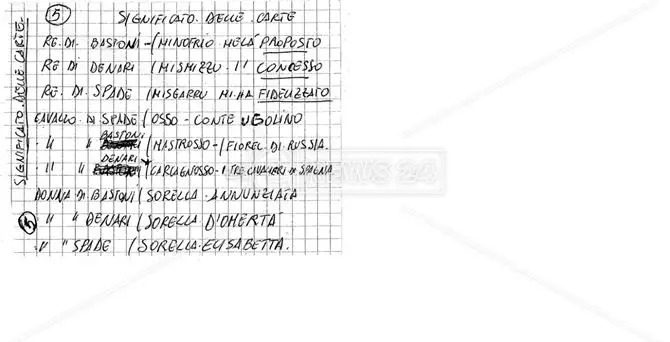 5 SIGNIFICATO. DELLE CARTE
SIGNIFICATO. DELLE CARTE.
RE. DI. BASTONI - (MINOFRIO MELÁ PROPOSTO
RE DI DENARI (MISMIZZU. IL CONCESSO
RE. DI. SPADE (MISGARRU MI HA FIDELIZZATO
CAVALLO. DI SPADE (OSSO - CONTE UGOLINO
" " BASTONI (MASTROSSO - (FIOREL. DI RUSSIA.
" " DENARI (CARCAGNOSSO - I TRE CAVALIERI DI SPAGNA
DONNA DI BASTONI (SORELLA ANNUNZIATA
5 " " DENARI (SORELLA D'OMERTÀ
" " SPADE (SORELLA ELISABETTA.
NEWS 24